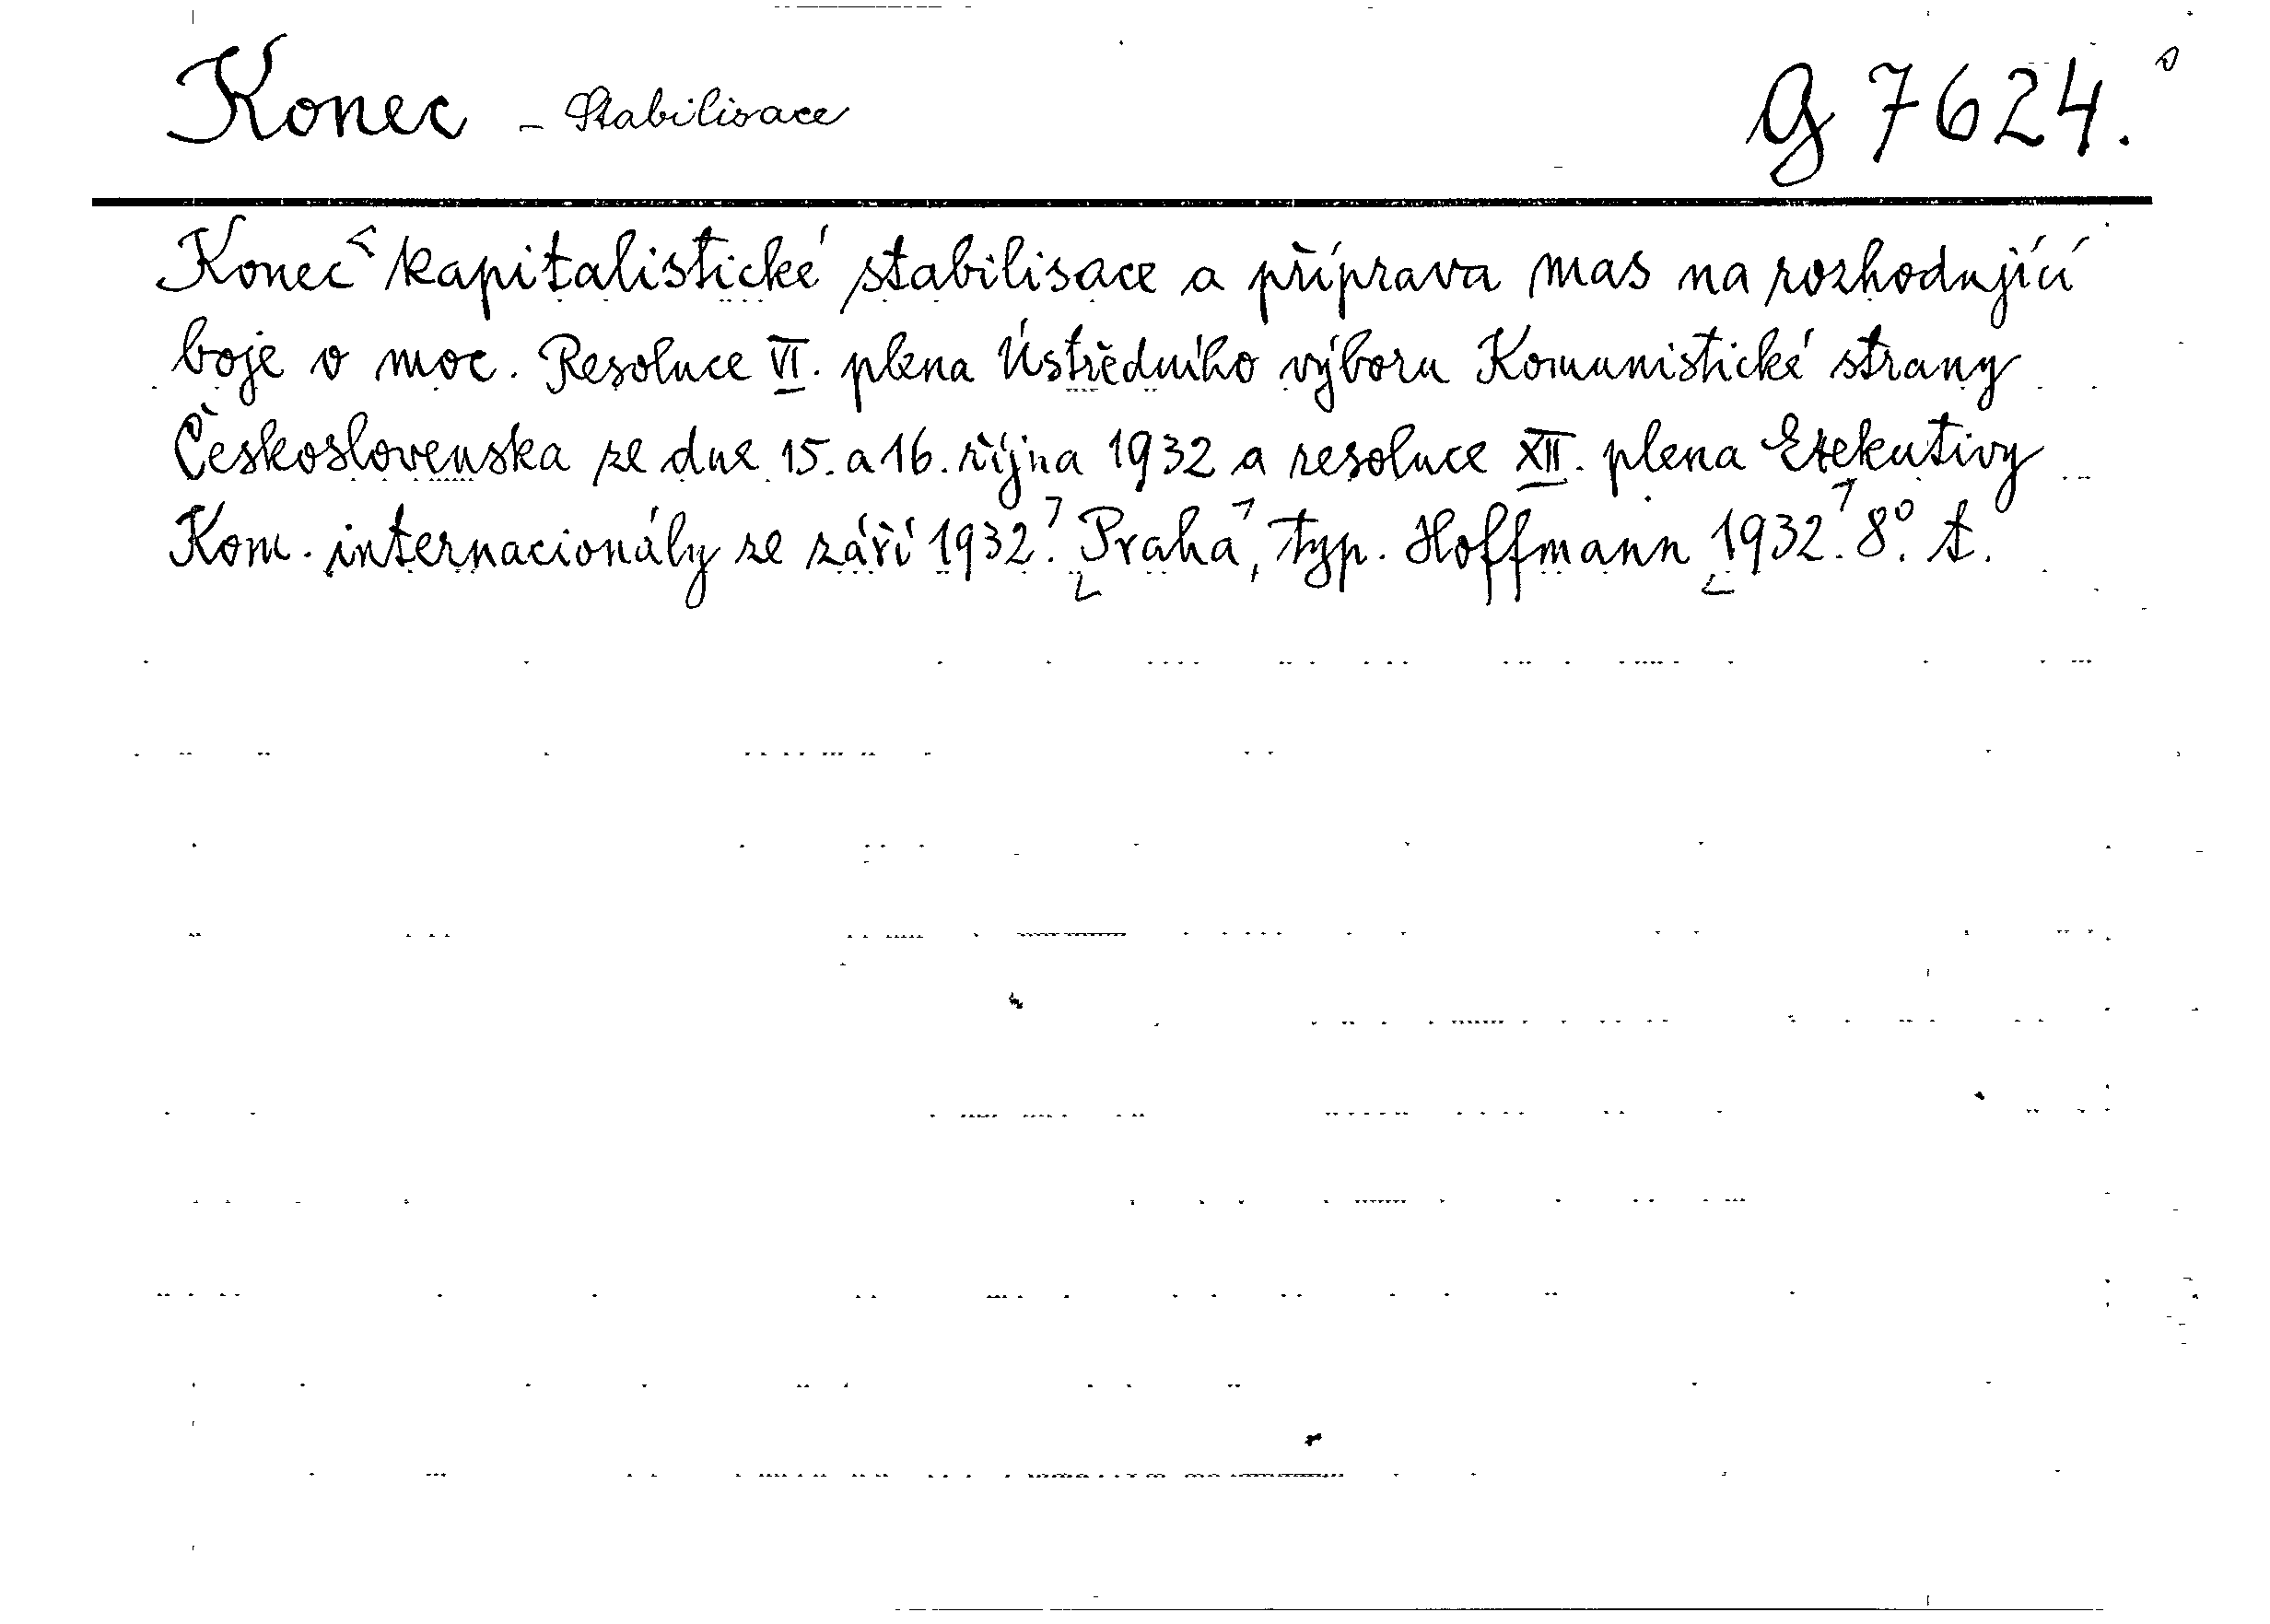 Konec - Stabilisace G 7624.
Konec kapitalistické stabilisace a příprava mas na rozhodující
boje o moc. Resoluce VI. plena Ústředního výboru Komunistické strany
Československa ze dne 15. a 16. října 1932 a resoluce XII. plena Exekutivy
Kom. internacionály ze září 1932. Praha, typ. Hoffmann 1932. 8°. t.